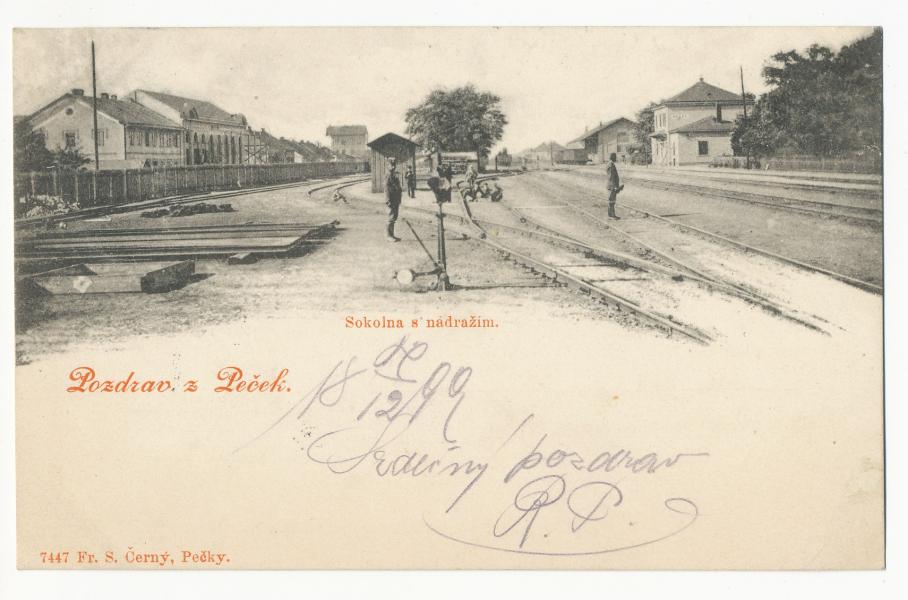 Sokolna s nádražím.
Pozdrav z Peček.
18 X 99
12
Srdečný pozdrav
R. P.
7447 Fr. S. Černý, Pečky.